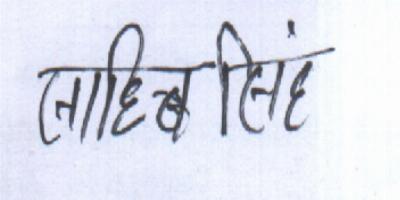 साहिब सिंह